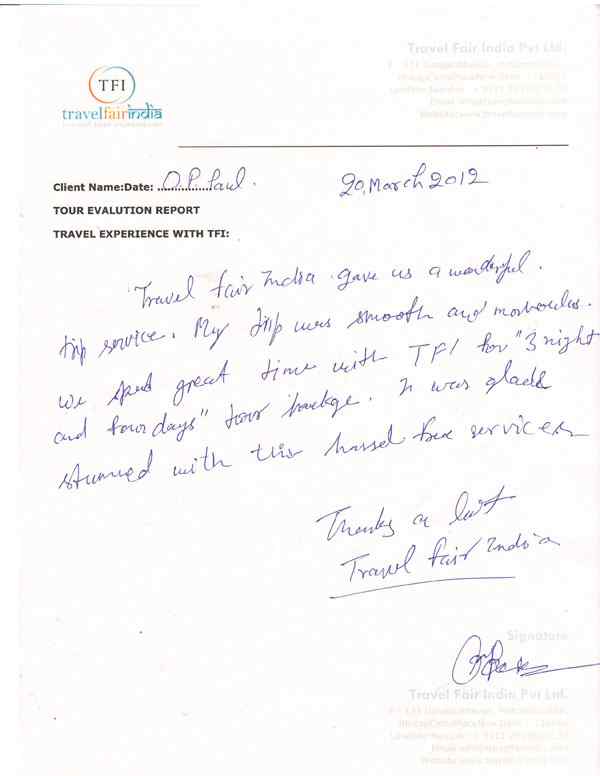 Travel Fair India Pvt Ltd.
TFI
travelfairindia
Client Name:Date: O.P. Paul. 20, March 2012
TOUR EVALUTION REPORT
TRAVEL EXPERIENCE WITH TFI:
Travel fair India gave us a wonderful.
trip service. My trip was smooth and
we spend great time with TFI for "3 night
and four days" tour It was glad
stunned with this hassel free services
Thanks a lot
Travel fair India
Signature
Travel Fair India Pvt Ltd.